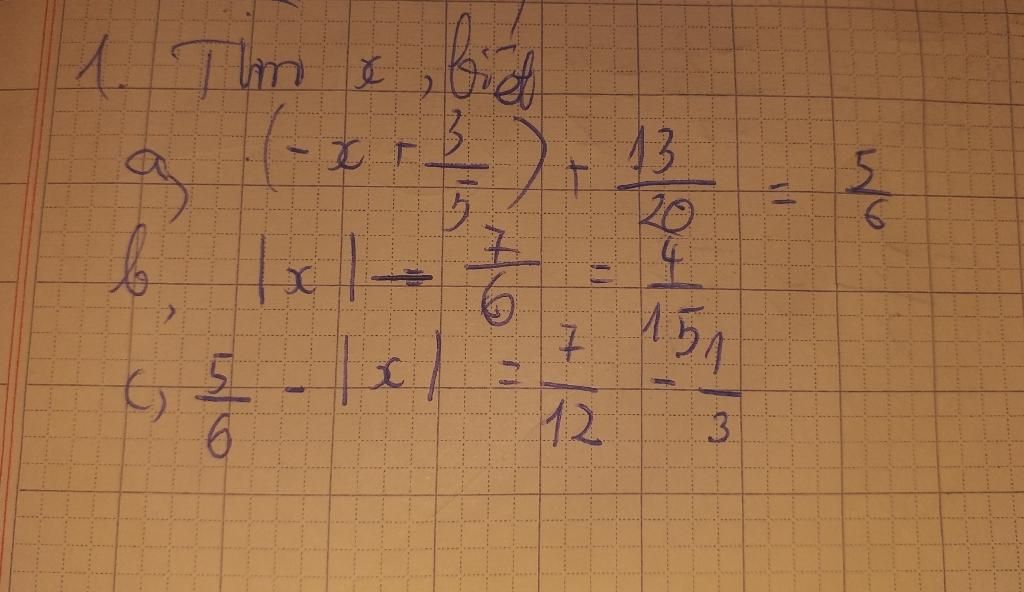 1. Tìm x, biết
a, (-x + 3/5) + 13/20 = 5/6
b, |x| - 7/6 = 4/15
c, 5/6 - |x| = 7/12 - 1/3